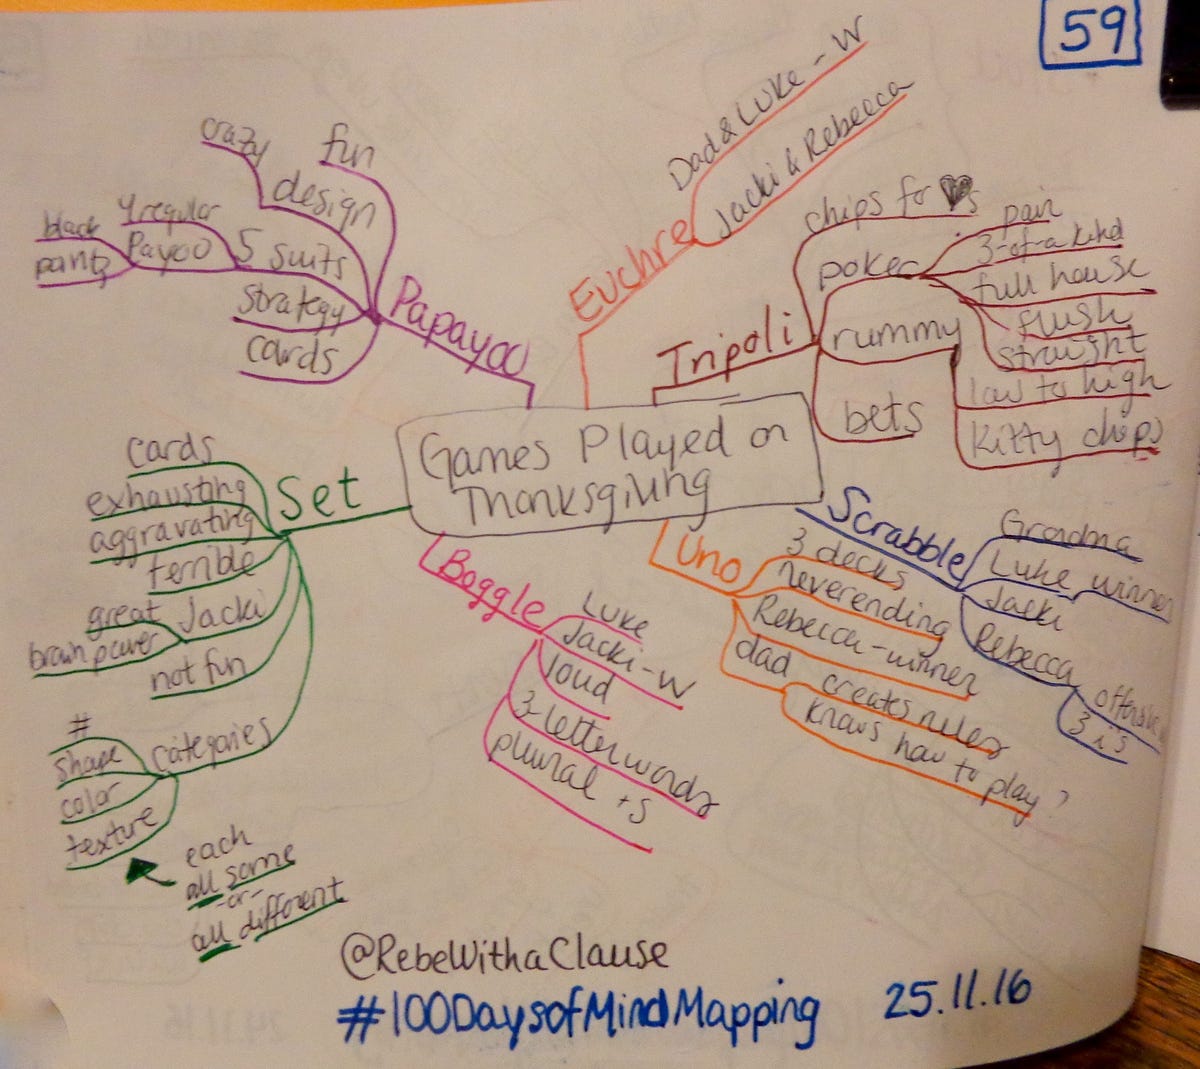 59
Games Played on
Thanksgiving
Papayoo
fun
design
crazy
5 suits
4 regular
Payoo
black
strategy
cards
Euchre
Dad & Luke - W
Jacki & Rebecca
Tripoli
chips for ♥s
poker
pair
3-of-a kind
full house
flush
straight
rummy
low to high
Kitty chips
bets
Scrabble
Grandma
Luke winner
Jacki
Rebecca
3 i's
Uno
3 decks
neverending
Rebecca-winner
dad creates rules
knows how to play?
Boggle
Luke
Jacki-W
loud
3-letter words
plural +s
Set
cards
exhausting
aggravating
terrible
Jacki
great
brain power
not fun
categories
#
shape
color
texture
each
all same
-or-
all different
@RebeWithaClause
#100DaysofMindMapping 25.11.16